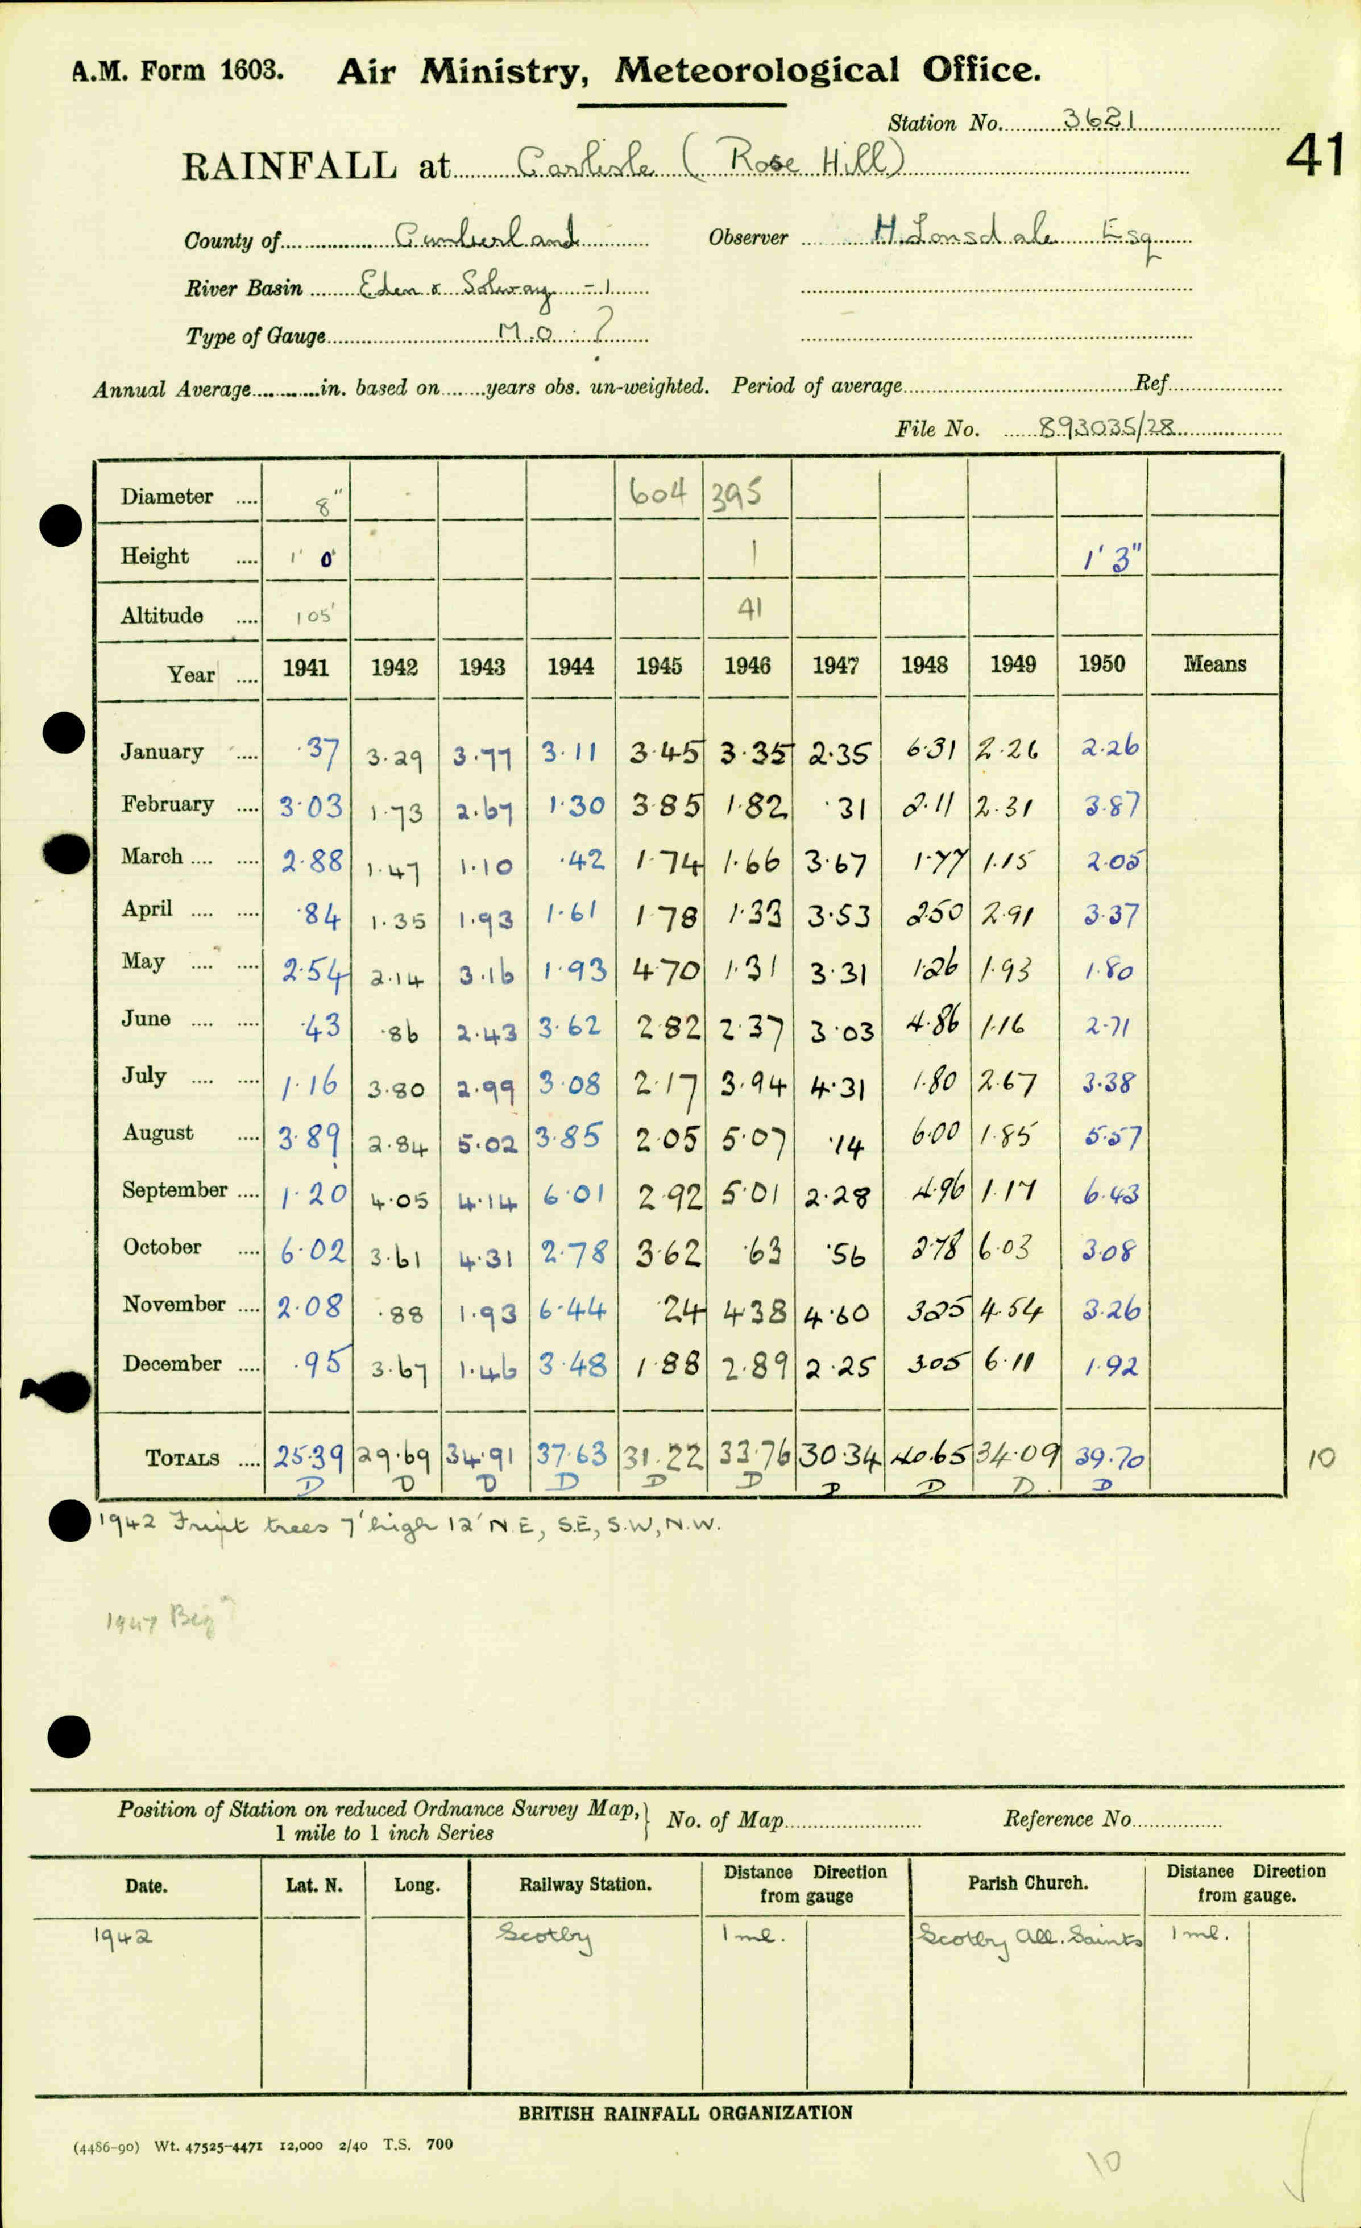 A.M. Form 1603. Air Ministry, Meteorological Office.
Station No. 3621
41
RAINFALL at Carlisle (Rose Hill)
County of Cumberland Observer H. Lonsdale Esq
River Basin Eden & Solway - 1
Type of Gauge M.O. ?
Annual Average in. based on years obs. un-weighted. Period of average Ref
File No. 893035/28
Diameter 8" 604 395
Height 1' 0" 1 1' 3"
Altitude 105' 41
Year 1941 1942 1943 1944 1945 1946 1947 1948 1949 1950 Means
January .37 3.29 3.77 3.11 3.45 3.35 2.35 6.31 2.26 2.26
February 3.03 1.73 2.67 1.30 3.85 1.82 .31 2.11 2.31 3.87
March 2.88 1.47 1.10 .42 1.74 1.66 3.67 1.77 1.15 2.05
April .84 1.35 1.93 1.61 1.78 1.33 3.53 2.50 2.91 3.37
May 2.54 2.14 3.16 1.93 4.70 1.31 3.31 1.26 1.93 1.80
June .43 .86 2.43 3.62 2.82 2.37 3.03 4.86 1.16 2.71
July 1.16 3.80 2.99 3.08 2.17 3.94 4.31 1.80 2.67 3.38
August 3.89 2.84 5.02 3.85 2.05 5.07 .14 6.00 1.85 5.57
September 1.20 4.05 4.14 6.01 2.92 5.01 2.28 4.96 1.17 6.43
October 6.02 3.61 4.31 2.78 3.62 .63 .56 3.78 6.03 3.08
November 2.08 .88 1.93 6.44 .24 4.38 4.60 3.25 4.54 3.26
December .95 3.67 1.46 3.48 1.88 2.89 2.25 3.05 6.11 1.92
TOTALS 25.39 29.69 34.91 37.63 31.22 33.76 30.34 40.65 34.09 39.70 10
D D D D D D D D D D
1942 Fruit trees 7' high 12' N.E, S.E, S.W, N.W.
1947 Beg
Position of Station on reduced Ordnance Survey Map,} No. of Map Reference No.
1 mile to 1 inch Series
Date. Lat. N. Long. Railway Station. Distance Direction from gauge Parish Church. Distance Direction from gauge.
1942 Scotby 1 ml. Scotby All. Saints 1 ml.
BRITISH RAINFALL ORGANIZATION
(4486-90) Wt. 47525-4471 12,000 2/40 T.S. 700
10